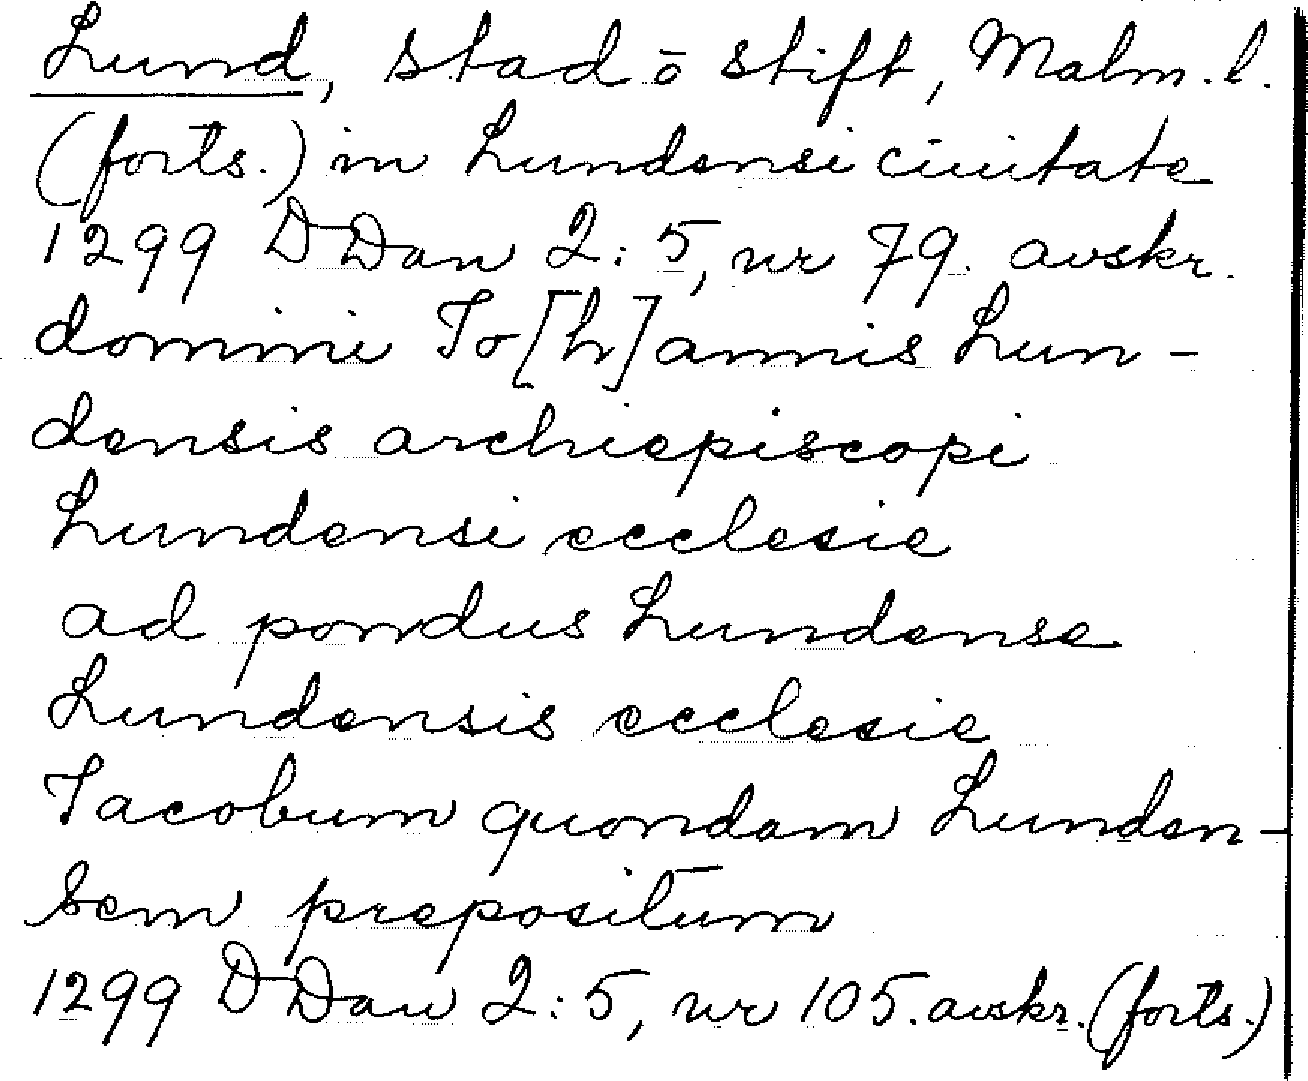 Lund, stad o stift, Malm. l.
(forts.) in Lundensi ciuitate
1299 DDan 2:5, nr 79. avskr.
domini Jo[h]annis Lun-
densis archiepiscopi
Lundensi ecclesie
ad pondus Lundense
Lundensis ecclesie
Jacobum quondam Lunden-
sem prepositum
1299 DDan 2:5, nr 105. avskr. (forts.)